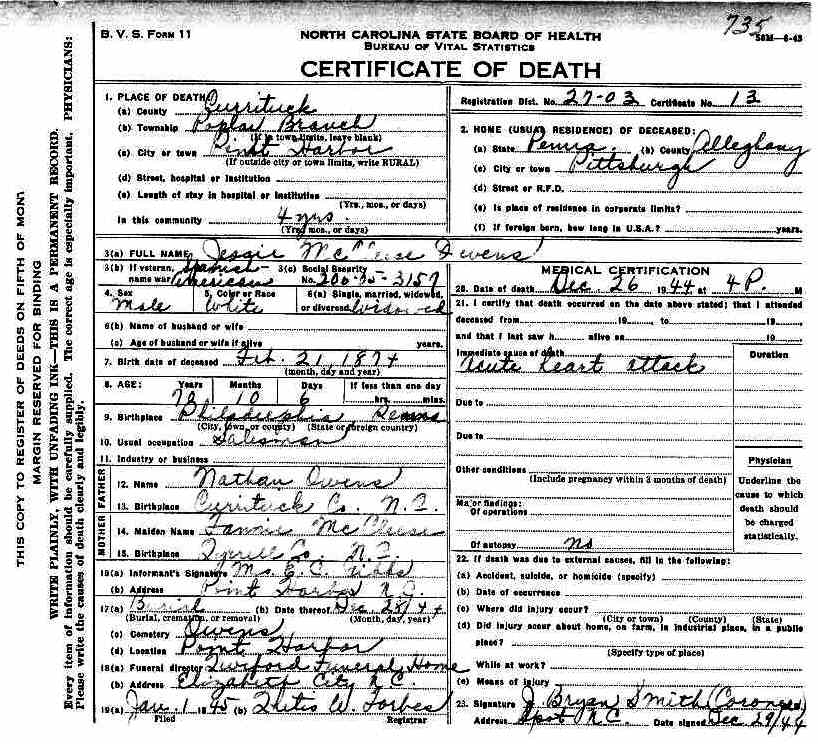 735
B. V. S. FORM 11
NORTH CAROLINA STATE BOARD OF HEALTH
50M—8-43
BUREAU OF VITAL STATISTICS
CERTIFICATE OF DEATH
THIS COPY TO REGISTER OF DEEDS ON FIFTH OF MONTH
MARGIN RESERVED FOR BINDING
WRITE PLAINLY, WITH UNFADING INK—THIS IS A PERMANENT RECORD.
Every item of information should be carefully supplied. The correct age is especially important. PHYSICIANS:
Please write the causes of death clearly and legibly.
1. PLACE OF DEATH
(a) County Currituck
(b) Township Poplar Branch
(If in town limits, leave blank)
(c) City or town Point Harbor
(If outside city or town limits, write RURAL)
(d) Street, hospital or institution
(e) Length of stay in hospital or institution
(Yrs., mos., or days)
In this community 4 yrs.
(Yrs., mos., or days)
Registration Dist. No. 27-03 Certificate No. 13
2. HOME (USUAL RESIDENCE) OF DECEASED:
(a) State Penna (b) County Alleghany
(c) City or town Pittsburgh
(d) Street or R.F.D.
(e) Is place of residence in corporate limits?
(f) If foreign born, how long in U.S.A.? years.
3(a) FULL NAME Jessie McCleese Owens
3(b) If veteran, name war Spanish-American 3(c) Social Security No. 200-05-3157
4. Sex Male 5. Color or Race White 6(a) Single, married, widowed, or divorced widowed
6(b) Name of husband or wife
(c) Age of husband or wife if alive years.
7. Birth date of deceased Feb. 21, 1874
(month, day and year)
8. AGE: Years Months Days If less than one day
10 6 hrs. mins.
9. Birthplace Philadelphia Penna
(City, town or county) (State or foreign country)
10. Usual occupation Salesman
11. Industry or business
FATHER
12. Name Nathan Owens
13. Birthplace Currituck Co. N.C.
MOTHER
14. Maiden Name Fannie McCleese
15. Birthplace Tyrrell Co. N.C.
16(a) Informant's Signature Mrs. E. C.
(b) Address Point Harbor N.C.
17(a) Burial (b) Date thereof Dec 28/44
(Burial, cremation, or removal) (Month, day, year)
(c) Cemetery Owens
(d) Location Point Harbor
18(a) Funeral director Twiford Funeral Home
(b) Address Elizabeth City N.C.
19(a) Jan. 1 1945 (b) W. Forbes
Filed Registrar
MEDICAL CERTIFICATION
20. Date of death Dec. 26 1944 at 4 P. M
21. I certify that death occurred on the date above stated; that I attended
deceased from 19 , to 19 ,
and that I last saw h alive on 19
Immediate cause of death Duration
Acute heart attack
Due to
Due to
Other conditions
(Include pregnancy within 3 months of death)
Major findings:
Of operations
Of autopsy no
Physician
Underline the
cause to which
death should
be charged
statistically.
22. If death was due to external causes, fill in the following:
(a) Accident, suicide, or homicide (specify)
(b) Date of occurrence
(c) Where did injury occur?
(City or town) (County) (State)
(d) Did injury occur about home, on farm, in industrial place, in a public
place?
(Specify type of place)
While at work?
(e) Means of injury
23. Signature J. Bryan Smith (Coroner)
Address Spot N.C. Date signed Dec 29/44